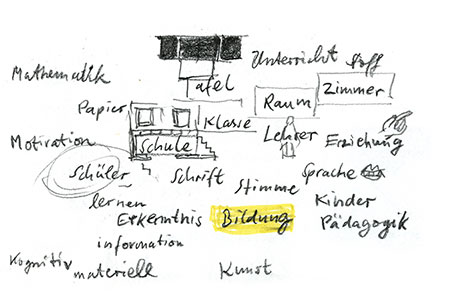 Unterricht Stoff
Mathematik Tafel Zimmer
Papier Klasse Raum
Motivation Schule Lehrer Erziehung
Schüler Schrift Stimme Sprache
lernen Kinder
Erkenntnis Bildung Pädagogik
information
Kognitiv materiell Kunst